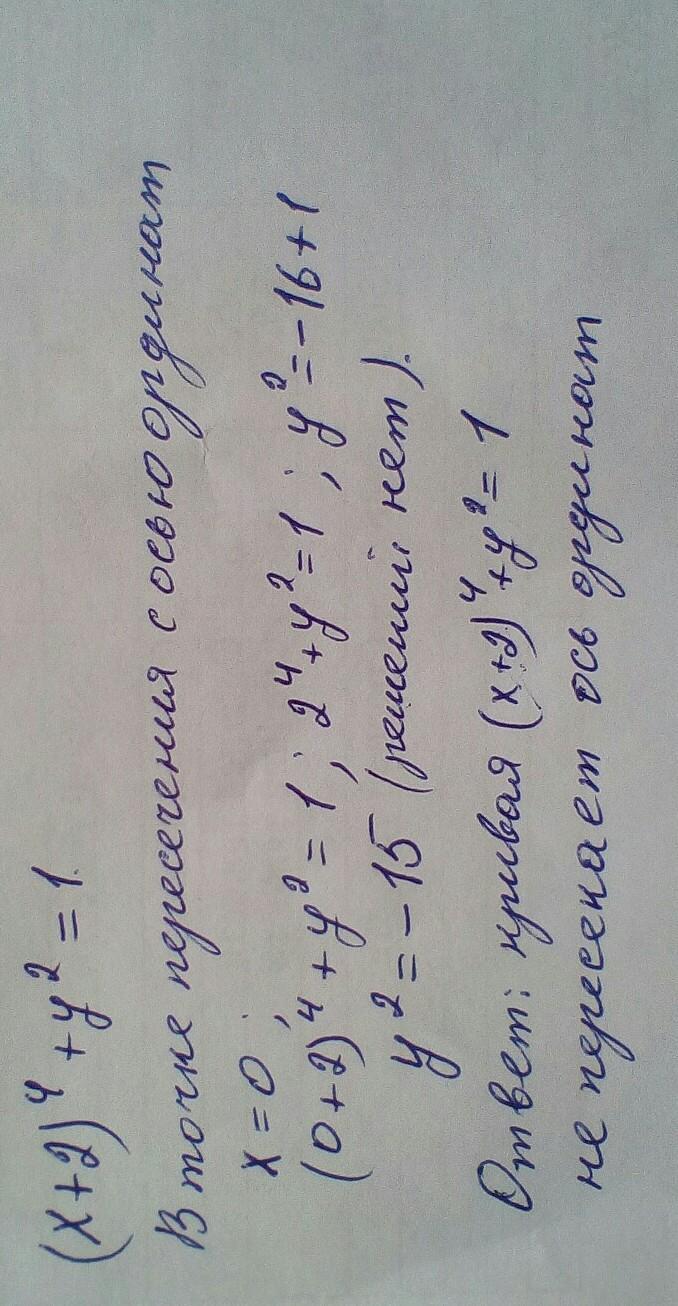 (x+2)⁴+y²=1.
В точке пересечения с осью ординат
x=0;
(0+2)⁴+y²=1; 2⁴+y²=1; y²=-16+1
y²=-15 (решений нет).
Ответ: кривая (x+2)⁴+y²=1
не пересекает ось ординат